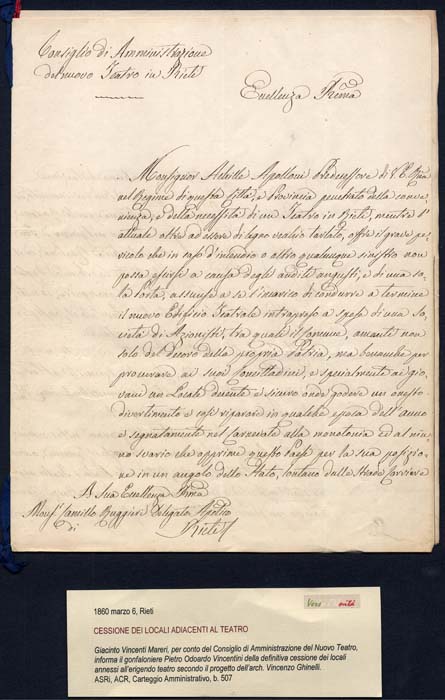 Consiglio di Amministrazione
del nuovo Teatro in Rieti
Eccellenza Rma
Monsignor Achille Apolloni Predecessore di V. E. Rma
nel Regime di questa Città, e Provincia penetrato della conve-
nienza, e della necessità di un Teatro in Rieti, mentre l'
attuale oltre ad essere di legno vecchio tarlato, offre il grave pe-
ricolo che in caso d'incendio o altro qualunque sinistro non
possa escirsi a causa degli anditi angusti, e di una so-
la Porta, assunse a se l'incarico di condurre a termine
il nuovo Edificio Teatrale intrapreso a spese di una So-
cietà di Azionisti, tra quale il Comune, amante non
solo del Decoro della propria Patria, ma benanche per
procurare ai suoi Concittadini, e specialmente ai gio-
vani un Locale decente e sicuro onde godere un onesto
divertimento e così riparare in qualche epoca dell'anno
e segnatamente nel carnevale alla monotonia ed al niu-
no svario che opprime questo Paese per la sua posizio-
ne in un angolo dello Stato, lontano dalle strade corriere
A Sua Eccellenza Rma
Monsr Camillo Ruggieri Delegato Aplico
di Rieti
1860 marzo 6, Rieti
CESSIONE DEI LOCALI ADIACENTI AL TEATRO
Giacinto Vincenti Mareri, per conto del Consiglio di Amministrazione del Nuovo Teatro,
informa il gonfaloniere Pietro Odoardo Vincentini della definitiva cessione dei locali
annessi all'erigendo teatro secondo il progetto dell'arch. Vincenzo Ghinelli.
ASRi, ACR, Carteggio Amministrativo, b. 507